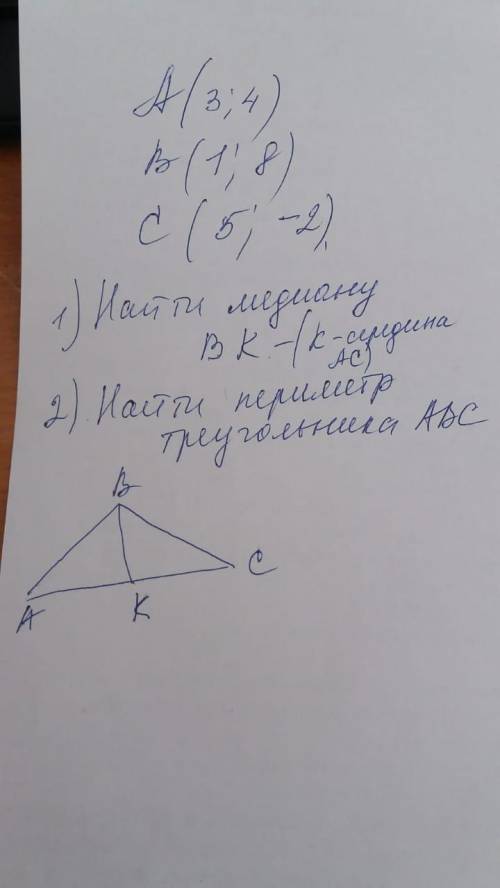 A(3; 4)
B(1; 8)
C(5; -2)
1) Найти медиану
BK - (K-середина
AC)
2) Найти периметр
треугольника ABC
B
C
A
K